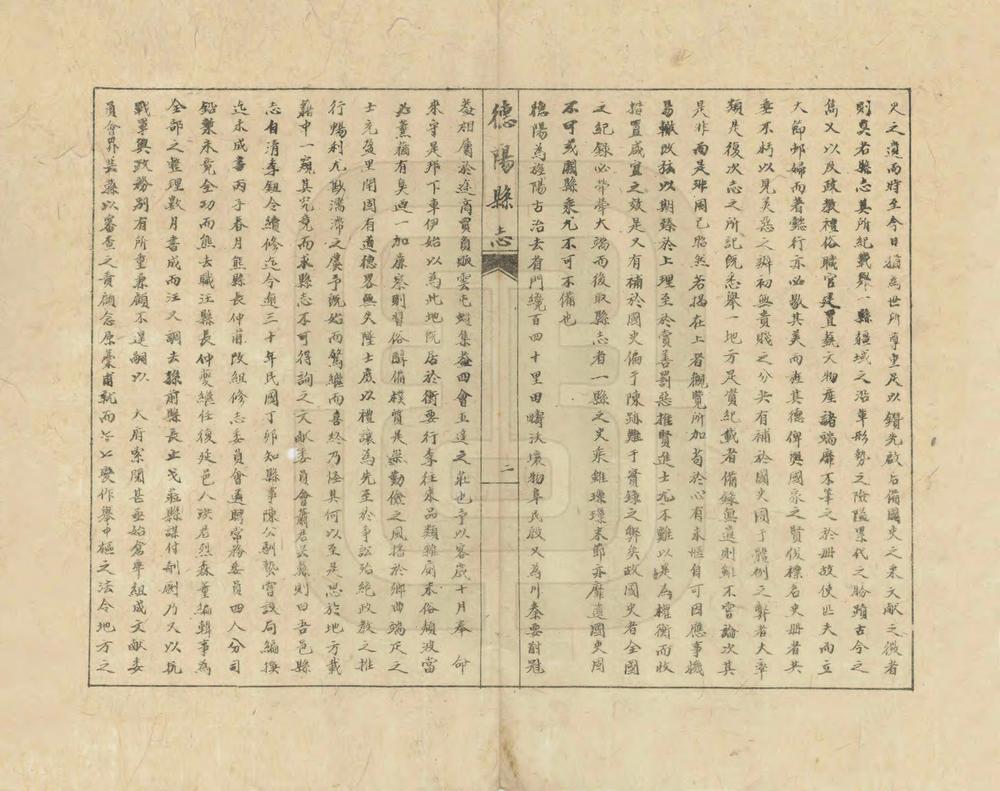 火之遺而時至今日猶為世所尊重足以鑽先啟后備國史之采文獻之徵者
則莫若縣志其所紀載舉一縣疆域之沿革形勢之險隘累代之勝蹟古今之
雋乂以及政教禮俗職官建置藝文物產諸端靡不筆之於冊故使匹夫而立
大節邨婦而著懿行亦必敭其美而彰其德俾與國家之賢俊標名史冊者共
垂不朽以見美惡之辨初無貴賤之分共有補於國史囿于體例之弊者大率
類是復次志之所記既悉舉一地方足資紀載者備錄無遺則雖不嘗論次其
是非而是非固已昭然若揭在上者觀覽所加苟於心有未愜自可因應事機
易轍改弦以期臻於上理至於賞善罰惡推賢進士尤不難以是為權衡而收
措置咸宜之效是又有補於國史偏于陳跡難于實錄之弊矣故國史者全國
之紀錄必犖犖大端而後取縣志者一縣之史乘雖瑣瑣末節亦靡遺國史固
不可或闕縣乘尤不可不備也
德陽為旌陽古治去省門纔百四十里田疇沃壤物阜民殷又為川秦要衝冠
德陽縣志
二
蓋相屬於途商賈負販雲屯蟻集蓋四會五達之莊也予以客歲十月奉　命
來守是邦下車伊始以為此地既居於衝要行李往來品類雜廁末俗頹波當
必薰蕕有臭迺一加廉察則習俗醇備樸質是崇勤儉之風播於鄉曲端疋之
士充盈里閈固有道德畧無失墜士庶以禮讓為先至於爭訟殆絕政教之推
行暢利尤尠濡滯之虞予既始而駕繼而喜終乃怪其何以至是思於地方載
籍中一窺其究竟而求縣志不可得詢之文獻委員會蕭君長縣則曰吾邑縣
志自清李鈕令續修迄今逾三十年民國丁卯知縣事陳公嗣贄嘗設局編撰
迄未成書丙子春月熊縣長仲甫改組修志委員會遴聘常務委員四人分司
鉛槧未竟全功而熊去職汪縣長仲夔繼任復延邑人洪君烈森董編輯事為
全部之整理數月書成而汪又調去縣前縣長止戈莊縣謀付剞劂乃又以抗
戰軍興政務別有所重兼顧不遑嗣以　大府案關甚亟始倉卒組成文獻委
員會畀長縣以審查之責顧念原藁甫就而公　慶作舉中樞之法令地方之